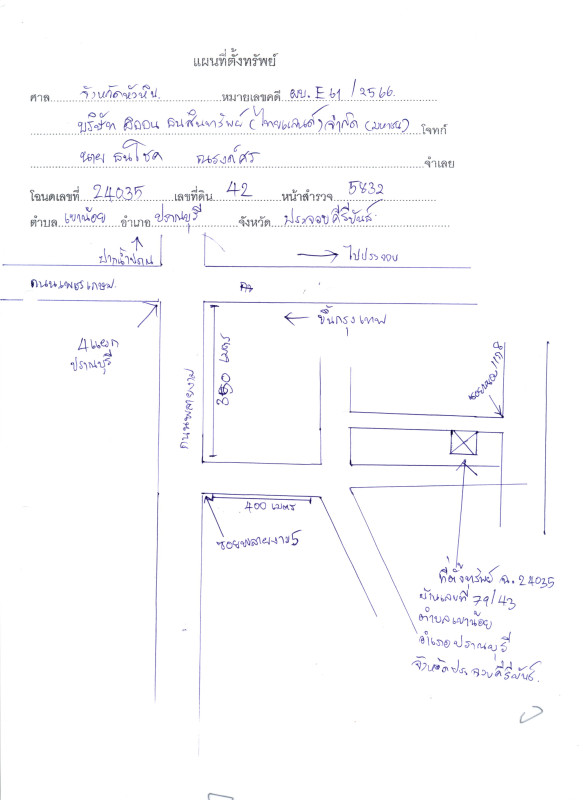 แผนที่ตั้งทรัพย์
ศาล จังหวัดหัวหิน หมายเลขคดี ผบ. E 61 / 2566
บริษัท สินทรัพย์ (ไทยแลนด์) จำกัด (มหาชน) โจทก์
นาย ธนโชค ณรงค์ศร จำเลย
โฉนดเลขที่ 24035 เลขที่ดิน 42 หน้าสำรวจ 5832
ตำบล เขาน้อย อำเภอ ปราณบุรี จังหวัด ประจวบคีรีขันธ์
ปากน้ำปราณ
ไปประจวบ
ถนนเพชรเกษม
ขึ้นกรุงเทพ
4 แยก
ปราณบุรี
ถนนพลายงาม
350 เมตร
400 เมตร
ซอยพลายงาม 5
ที่ตั้งทรัพย์ ฉ. 24035
บ้านเลขที่ 79/43
ตำบลเขาน้อย
อำเภอปราณบุรี
จังหวัดประจวบคีรีขันธ์.